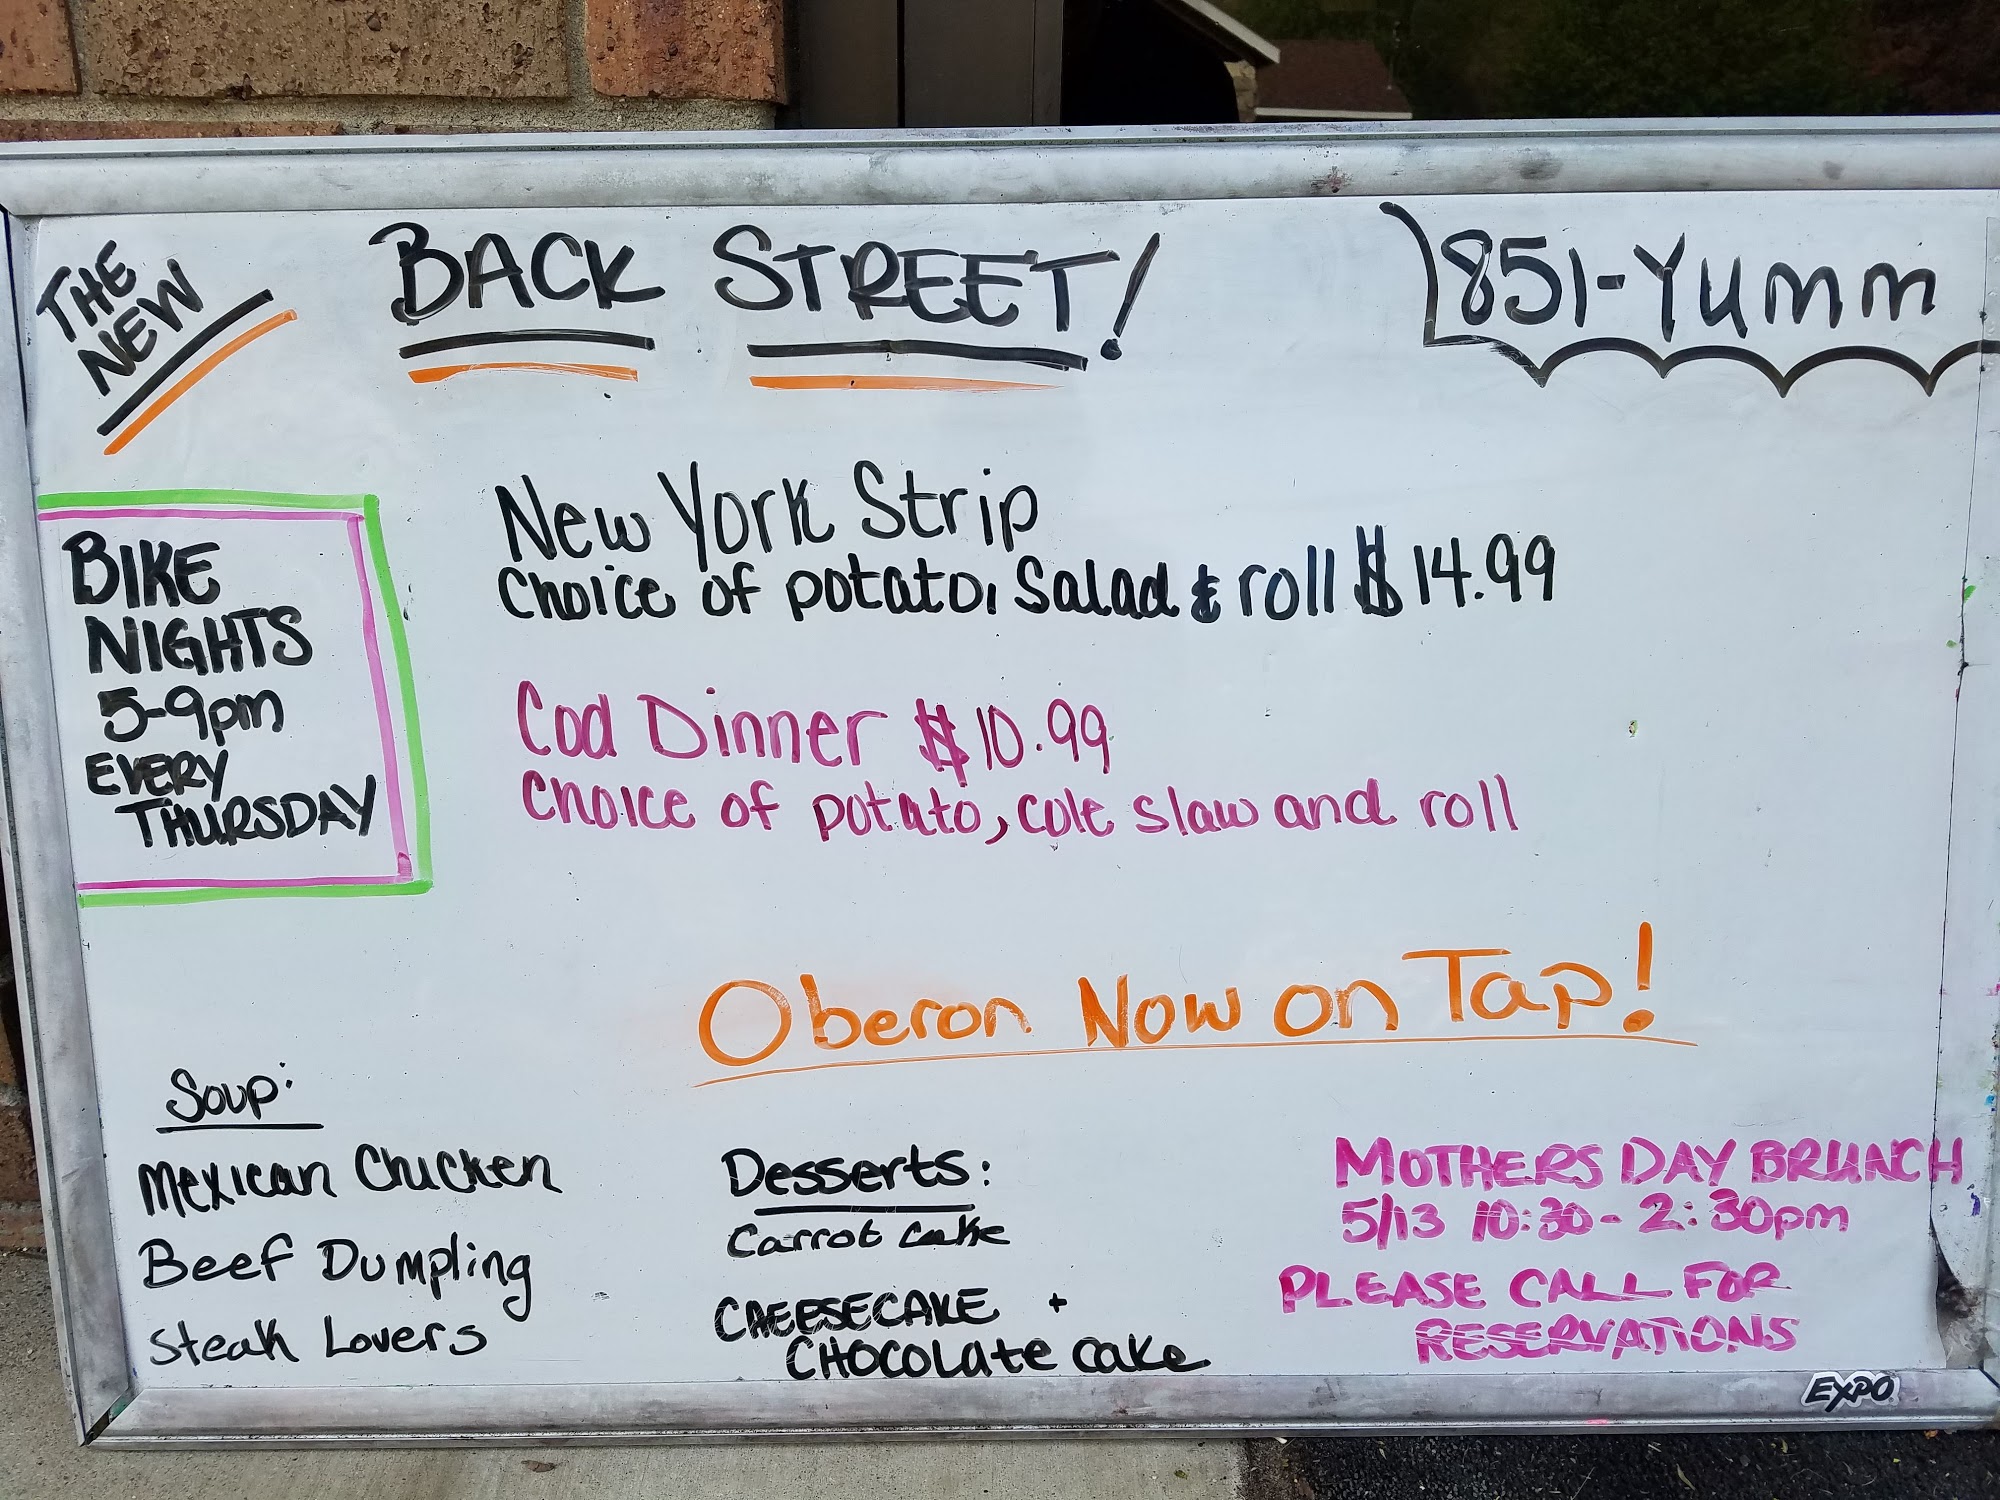 THE NEW
BACK STREET!
851-Yumm
BIKE
NIGHTS
5-9pm
EVERY
THURSDAY
New York Strip
Choice of potato, Salad & roll $14.99
Cod Dinner $10.99
Choice of potato, cole slaw and roll
Oberon Now on Tap!
Soup:
Mexican Chicken
Beef Dumpling
Steak Lovers
Desserts:
Carrot Cake
CHEESECAKE +
CHOCOLATE Cake
MOTHERS DAY BRUNCH
5/13 10:30-2:30pm
PLEASE CALL FOR
RESERVATIONS
EXPO